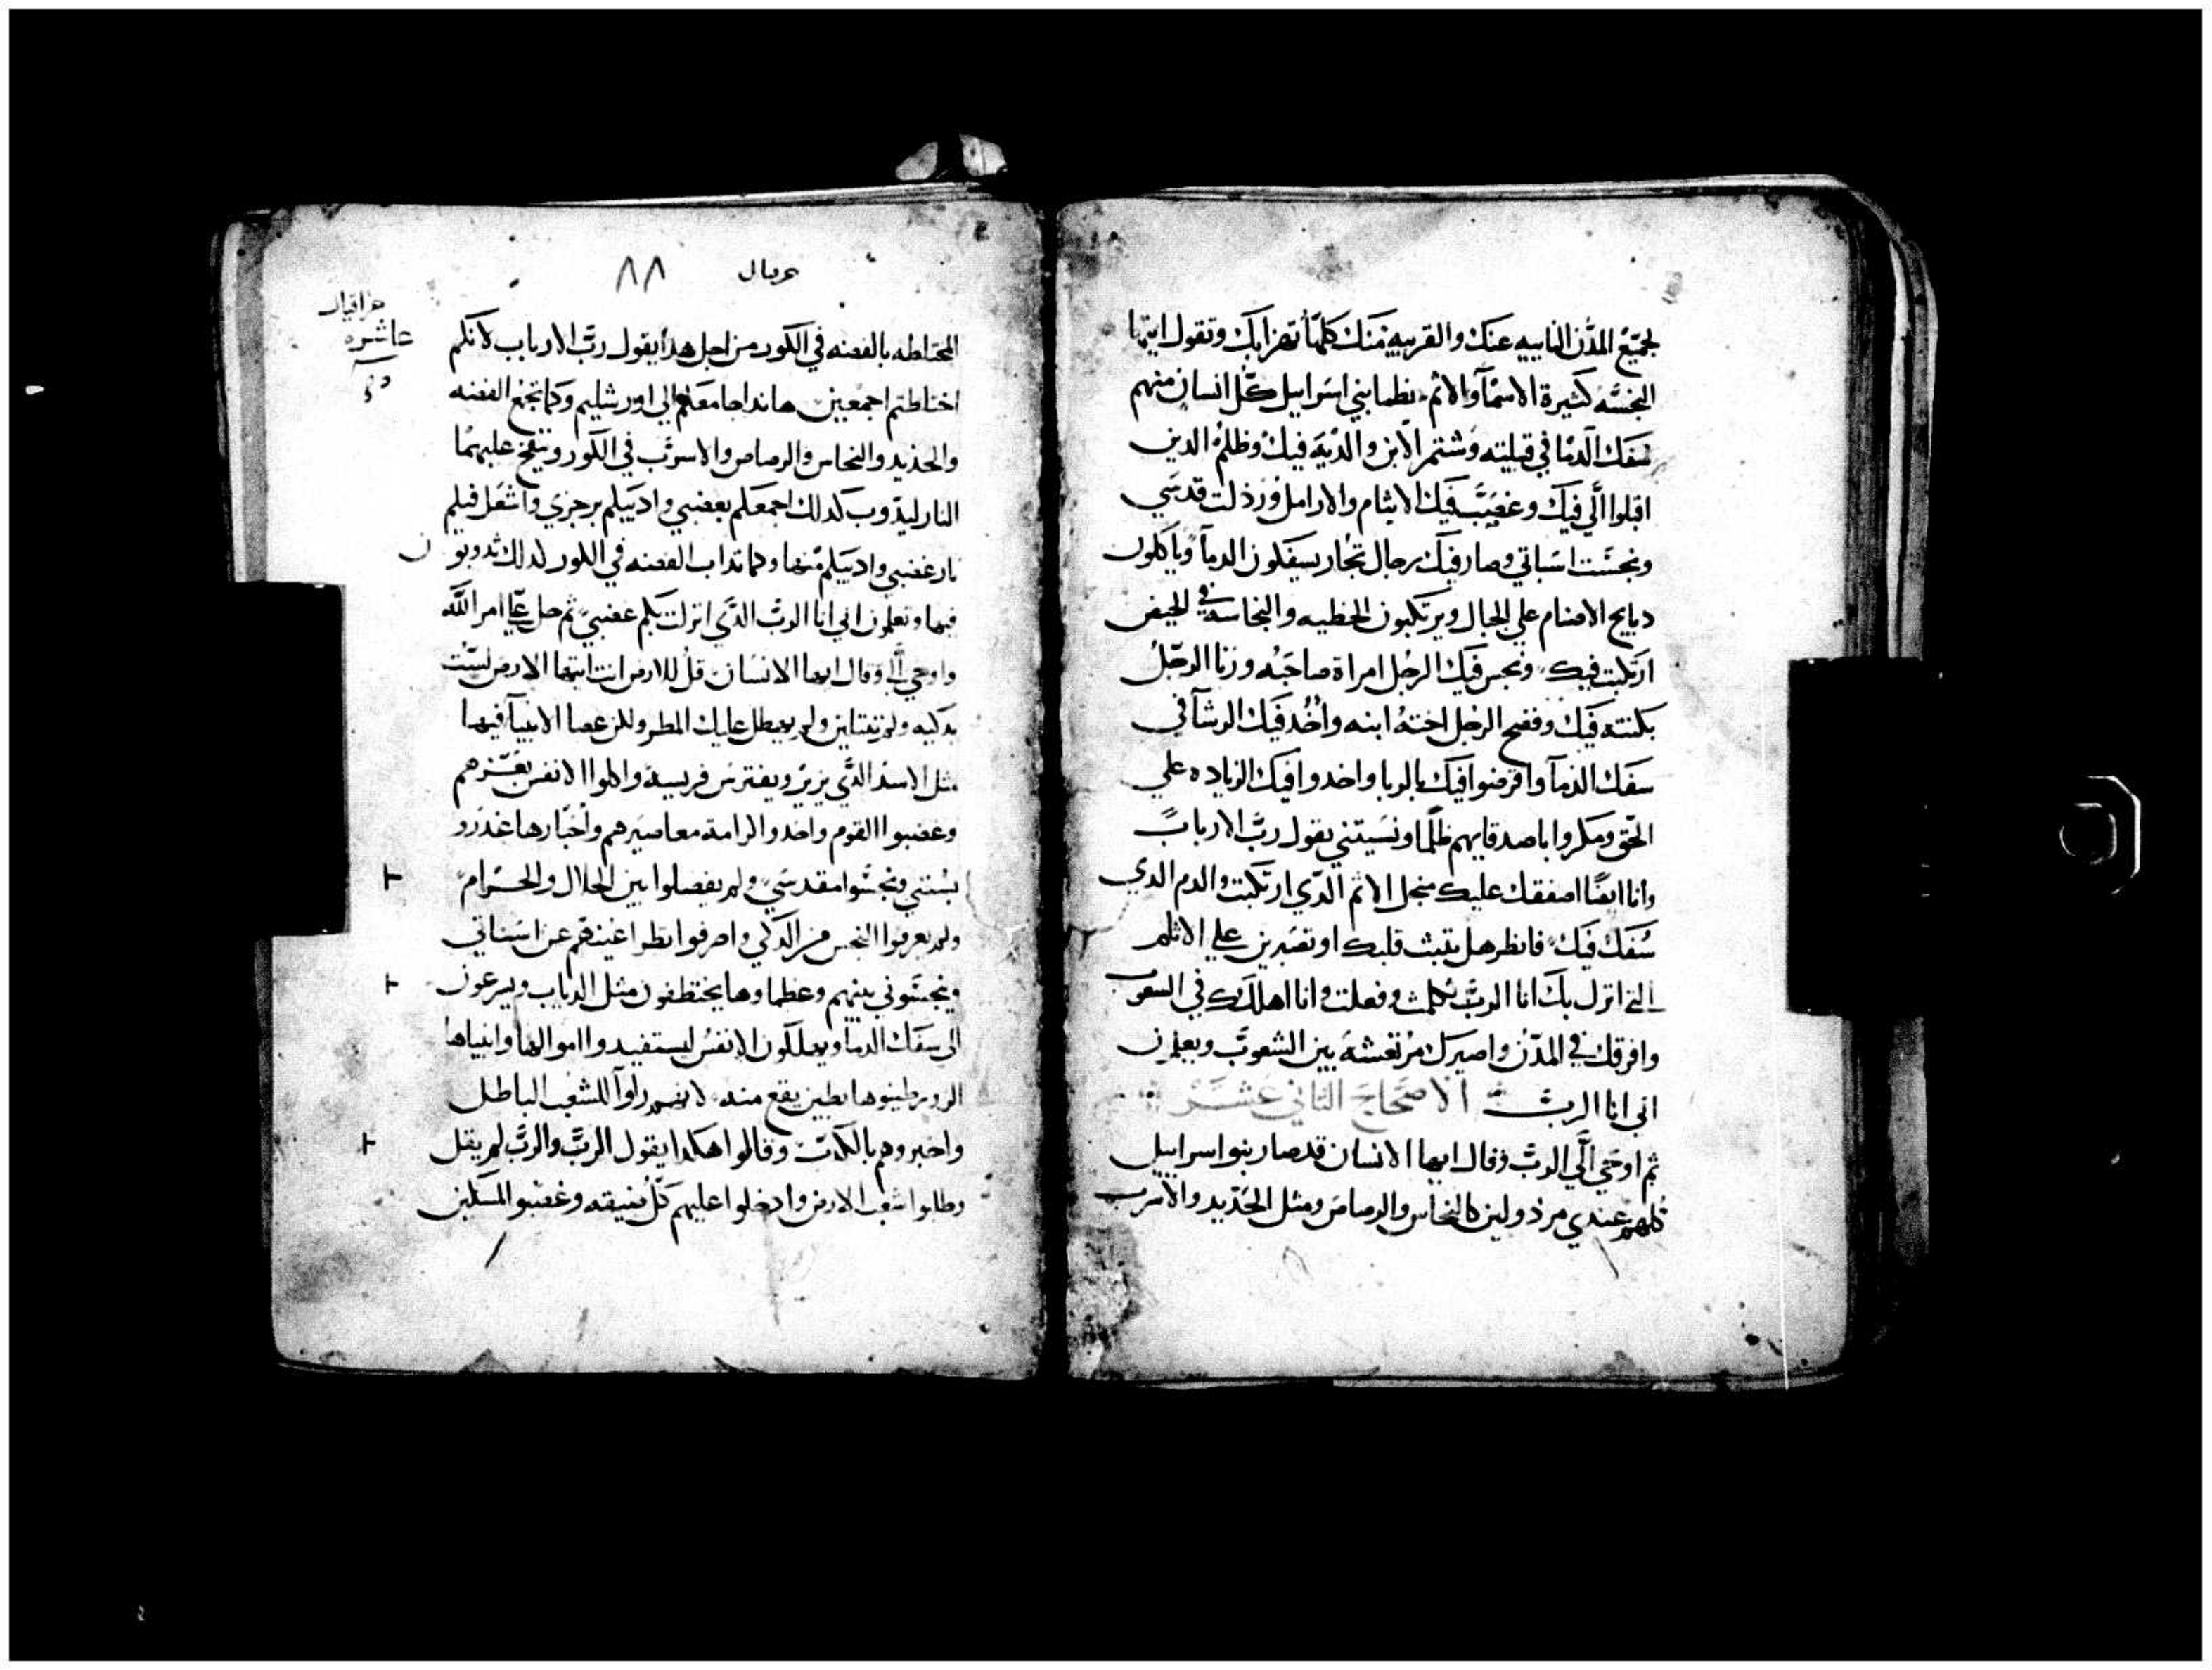 لجميع المدن النابيه عنك والقريبه منك كلها تهزا بك وتقول ايتها
النجسه كثيرة الاسمآ والاثم نظما بني اسراييل كل انسان منهم
سفك الدما في قبيلته وشتم الابن والديه فيك وظلم الدين
اقبلوا الي فيك وغصبت فيك الايتام والارامل ورذلت قدسي
ونجست اسباتي وصار فيك رجال تجار يسفكون الدمآ وياكلون
دبايح الاصنام علي الجبال ويرتكبون الخطيه والنجاسه في الحيض
ارتكبت فيك ونجس فيك الرجل امراة صاحبه وزنا الرجل
بكنته فيك وفضح الرجل اخته ابنه واخد فيك الرشا في
سفك الدمآ واقرضوا فيك بالربا واخدوا فيك الزياده علي
الحق ومكروا باصدقايهم ظلما ونسيتني يقول رب الارباب
وانا ايضا اصفقك عليك منجل الاثم الدي ارتكبت والدم الدي
سفك فيك فانظر هل يثبت قلبك او تصبرين علي الاثلم
التي انزل بك انا الرب تكلمت وفعلت وانا اهلكك في الشعوب
وافرقك في المدن واصيرك مرتعشة بين الشعوب ويعلمن
اني انا الرب الاصحاح التاني عشر
ثم اوحي الي الرب وقال ايها الانسان قد صار بنو اسراييل
كلهم عندي مرذولين كالنحاس والرصاص ومثل الحديد والاسرب
حزقيال ٨٨
حزاقيال
عاشره
المختلطه بالفضه في الكور من اجل هدا يقول رب الارباب لانكم
اختلطتم اجمعين هاندا جامعكم الي اورشليم وكما تجمع الفضه
والحديد والنحاس والرصاص والاسرب في الكور وينفخ عليهما
النار ليدوب كدلك اجمعكم بغضبي وادييكم برجزي واشعل فيكم
نار غضبي وادييكم منها وكما تداب الفضه في الكور كدلك تدوبون
فيها وتعلمون اني انا الرب الدي انزلت بكم غضبي ثم حل علي امر الله
واوحي الي وقال ايها الانسان قل للارض انت ايتها الارض لست
بدكيه ولم ولم يهطل عليك المطر ولكن عصا الانبيآ فيها
مثل الاسد الدي يزير ويفترس فريسه واكلوا الانفس بعزهم
وغضبوا القوم واخدوا الرامة معاصيرهم واحبارها غدرو
بسنتي ونجسوا مقدسي ولم يفصلوا بين الحلال والحرام
ولم يعرفوا النجس من الدكي واصرفوا نظر اعينهم عن اسباتي
ونجسوني بينهم وعظماوها يختطفون مثل الدياب ويسرعون
الي سفك الدما ويهلكون الانفس ليستفيدوا اموالها وانبياها
الدين يطينوها بطين يقع منه لانهم راوا للشعب الباطل
واخبروهم بالكدب وقالوا هكدا يقول الرب والرب لم يقل
وظلموا شعب الارض وادخلوا عليهم كل ضيقه وغضبوا المسكين